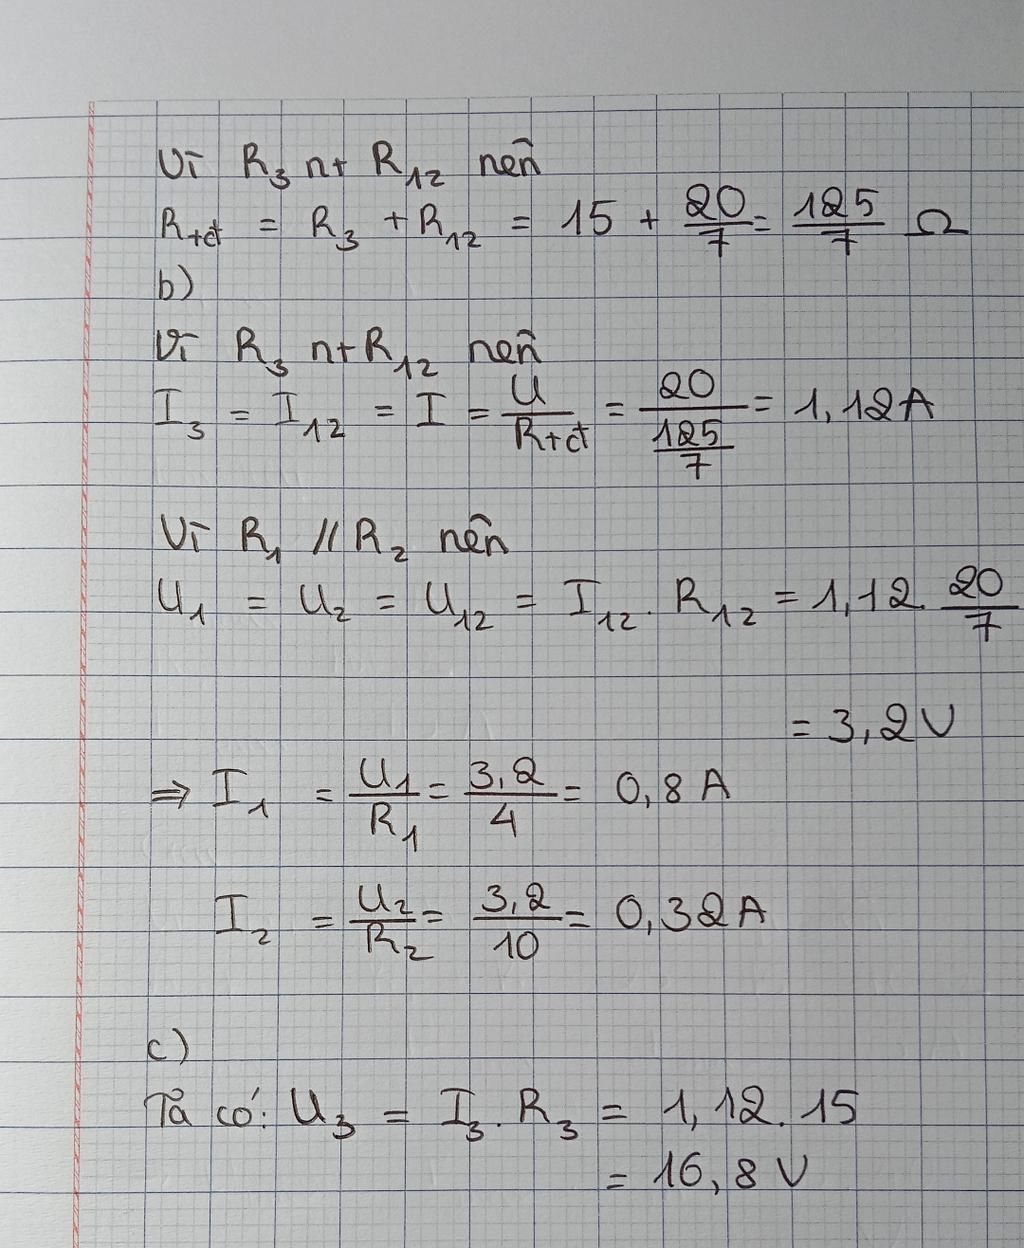 Vì R₃ nt R₁₂ nên
Rtđ = R₃ + R₁₂ = 15 + 20/7 = 125/7 Ω
b)
Vì R₃ nt R₁₂ nên
I₃ = I₁₂ = I = U/Rtđ = 20/(125/7) = 1,12A
Vì R₁ // R₂ nên
U₁ = U₂ = U₁₂ = I₁₂. R₁₂ = 1,12. 20/7
= 3,2V
⇒ I₁ = U₁/R₁ = 3,2/4 = 0,8 A
I₂ = U₂/R₂ = 3,2/10 = 0,32A
c)
Ta có: U₃ = I₃. R₃ = 1,12. 15
= 16,8 V